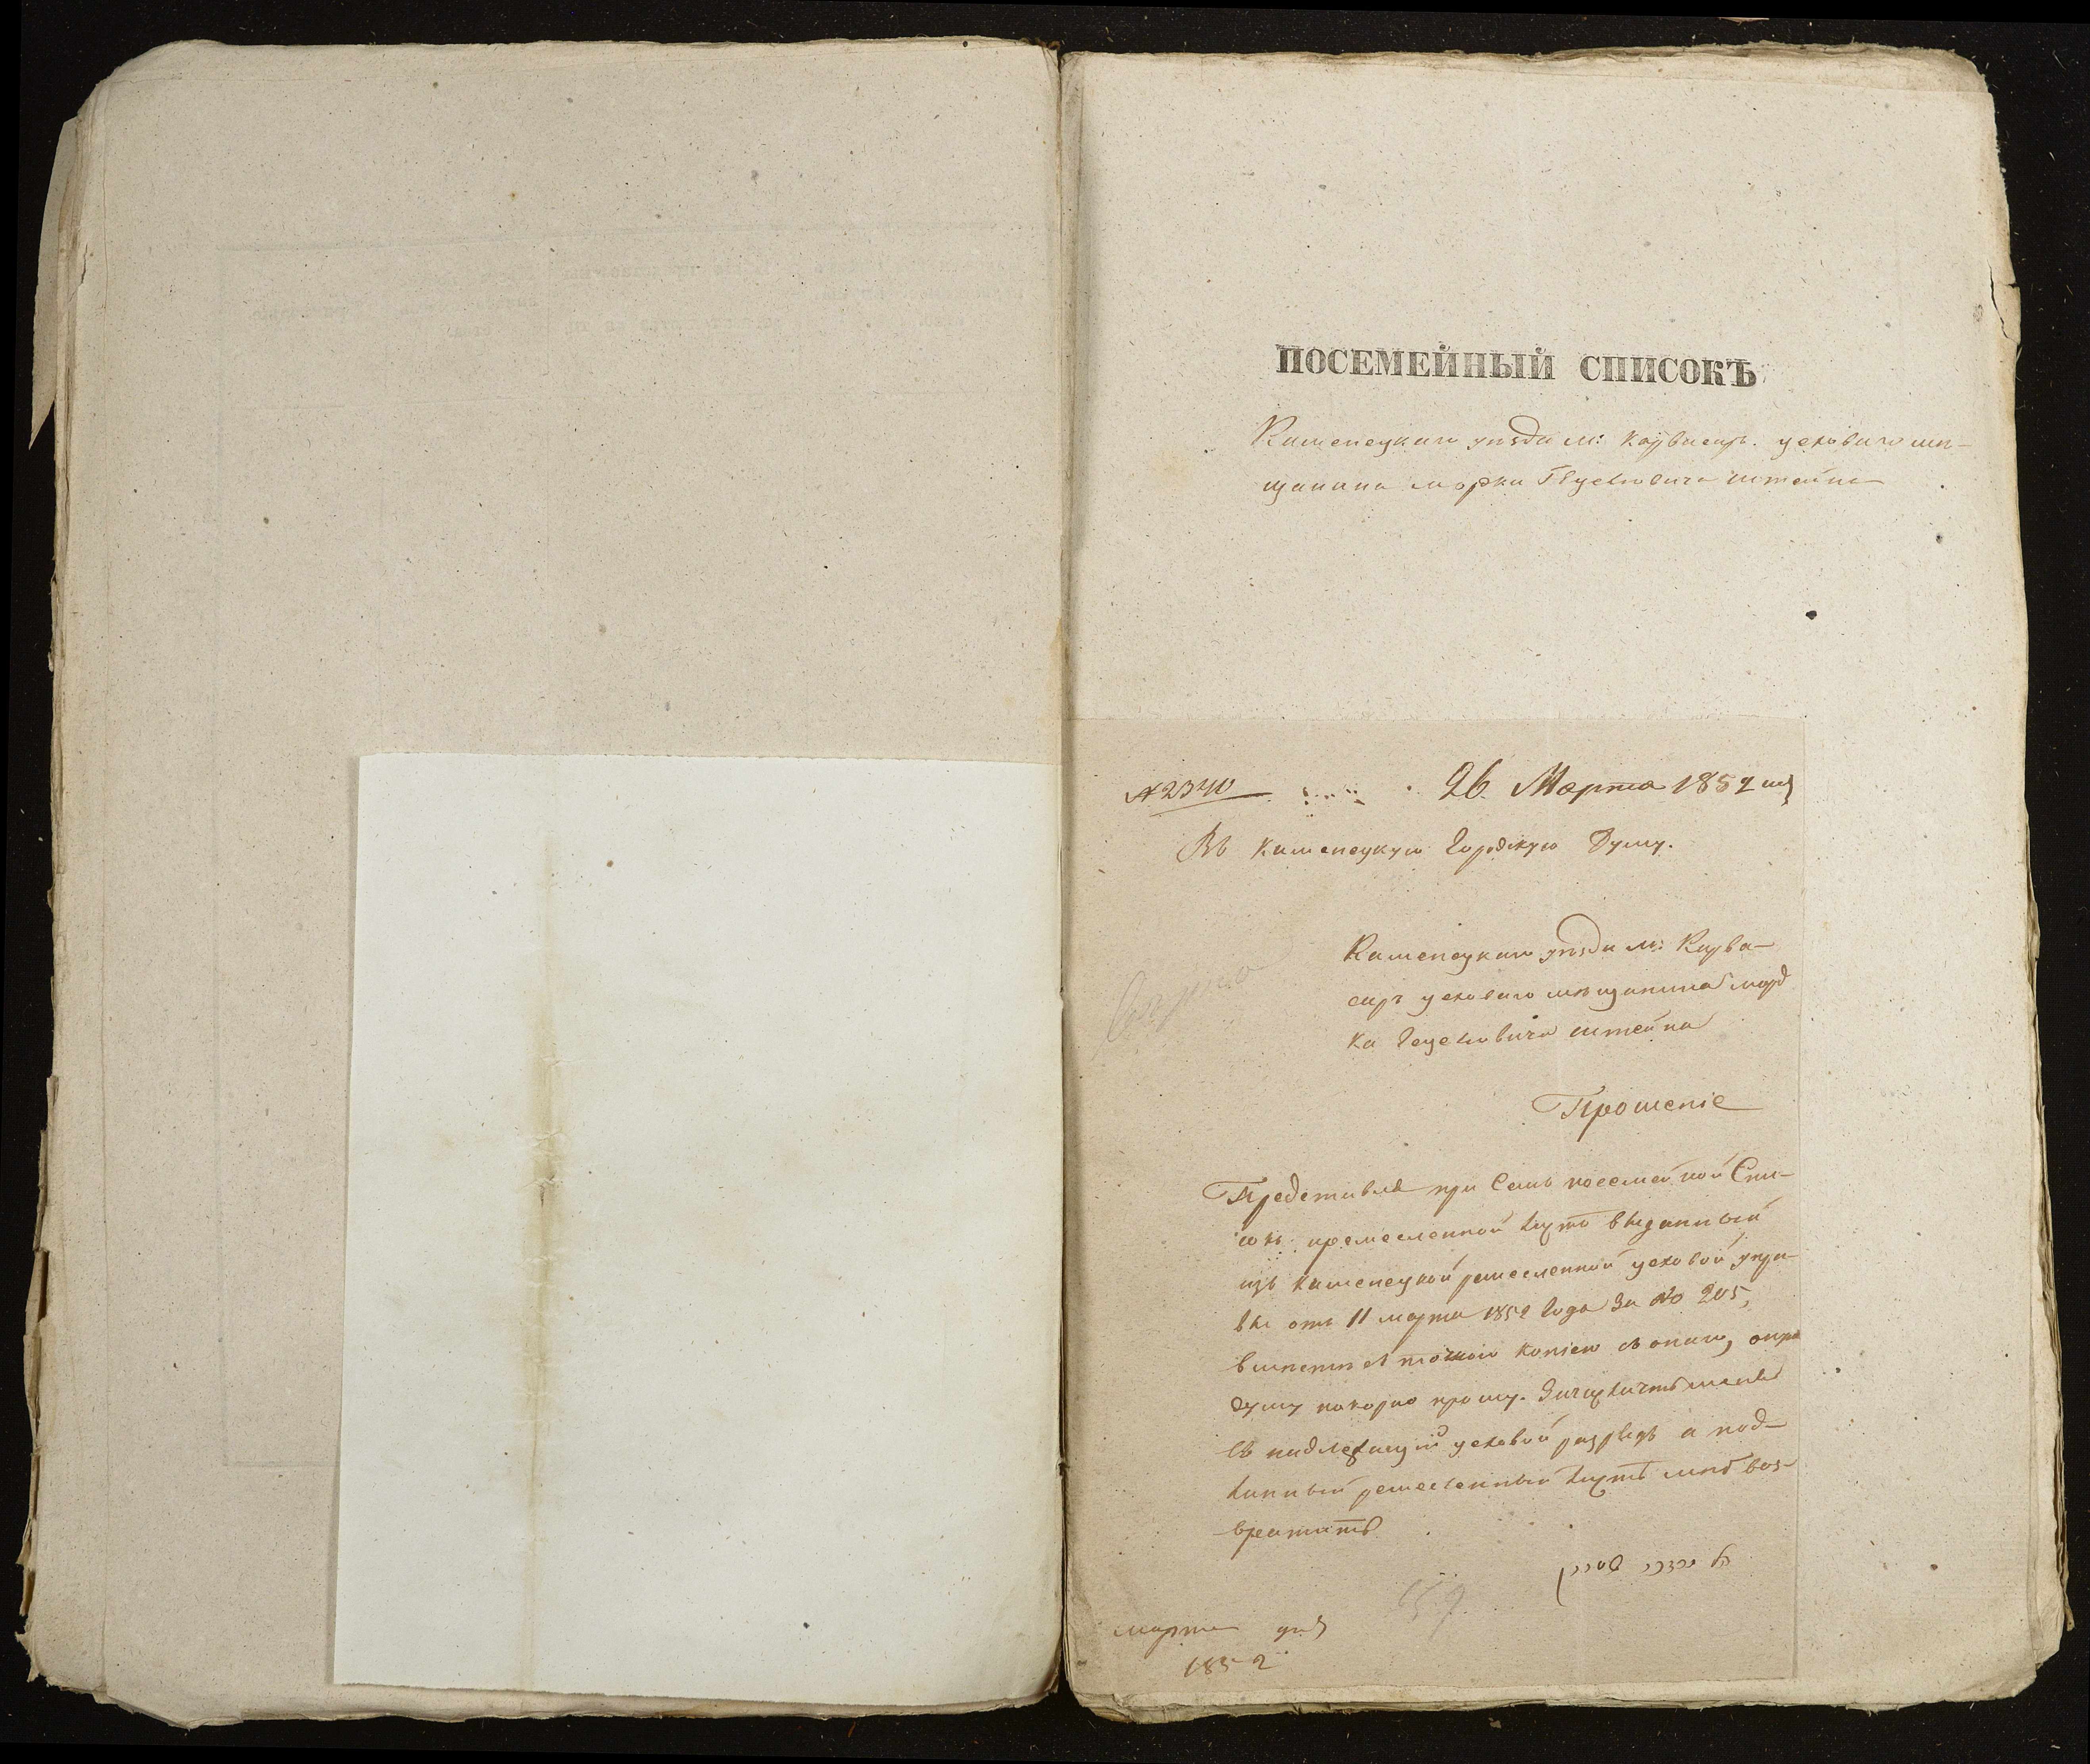 ПОСЕМЕЙНЫЙ СПИСОКЪ
Каменецкаго уѣзда м: Кузвасир. цеховаго мѣ-
щанина морки Гецелювича штейна
№ 2340 26 Марта 1852
Въ Каменецкую Городскую Думу.
Каменецкаго уѣзда м: Кузва-
сиръ цеховаго мѣщанина морд
ка Гецелювича штейна
Прошеніе
Представляя при семъ посемейной Спи-
сокъ ремесленной листъ выданный
изъ Каменецкой ремесленной цеховой упра-
вы отъ 11 марта 1852 года за № 205,
вмѣстѣ съ точною копіею съ онаго, оную
думу покорно прошу. Зачислить меня
въ надлежащій цеховой разрядъ а под-
линный ремесленный листъ мнѣ воз-
вратить
марта дня
1852